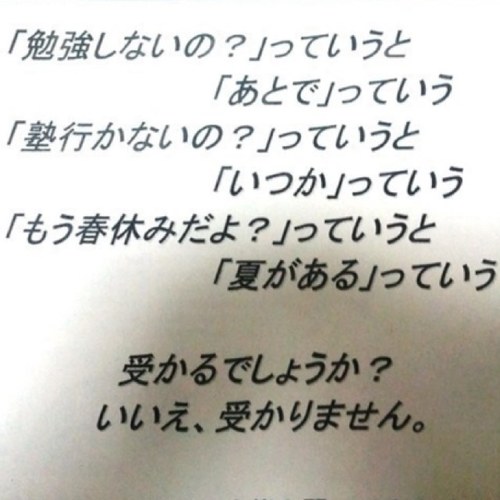 「勉強しないの？」っていうと
「あとで」っていう
「塾行かないの？」っていうと
「いつか」っていう
「もう春休みだよ？」っていうと
「夏がある」っていう
受かるでしょうか？
いいえ、受かりません。